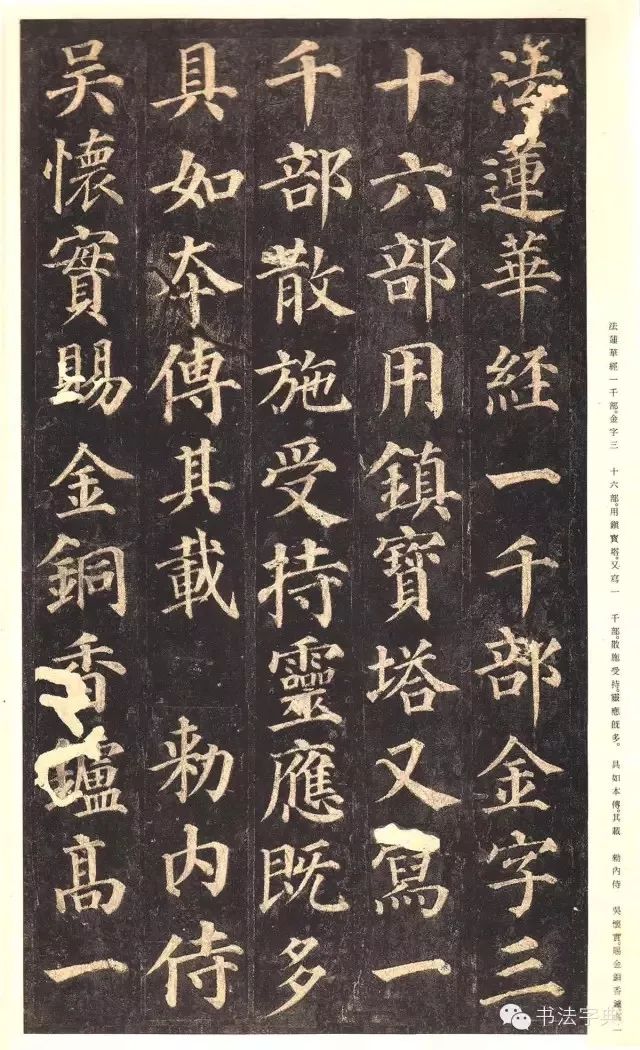 法蓮華經一千部金字三
十六部用鎮寶塔又寫一
千部散施受持靈應既多
具如夲傳其載　勑内侍
吳懷實賜金銅香鑪高一
法蓮華經一千部。金字三　十六部。用鎮寶塔。又寫一　千部。散施受持。靈應旣多。　具如本傳。其載　勅內侍　吳懷實。賜金銅香鑪。高一
书法字典